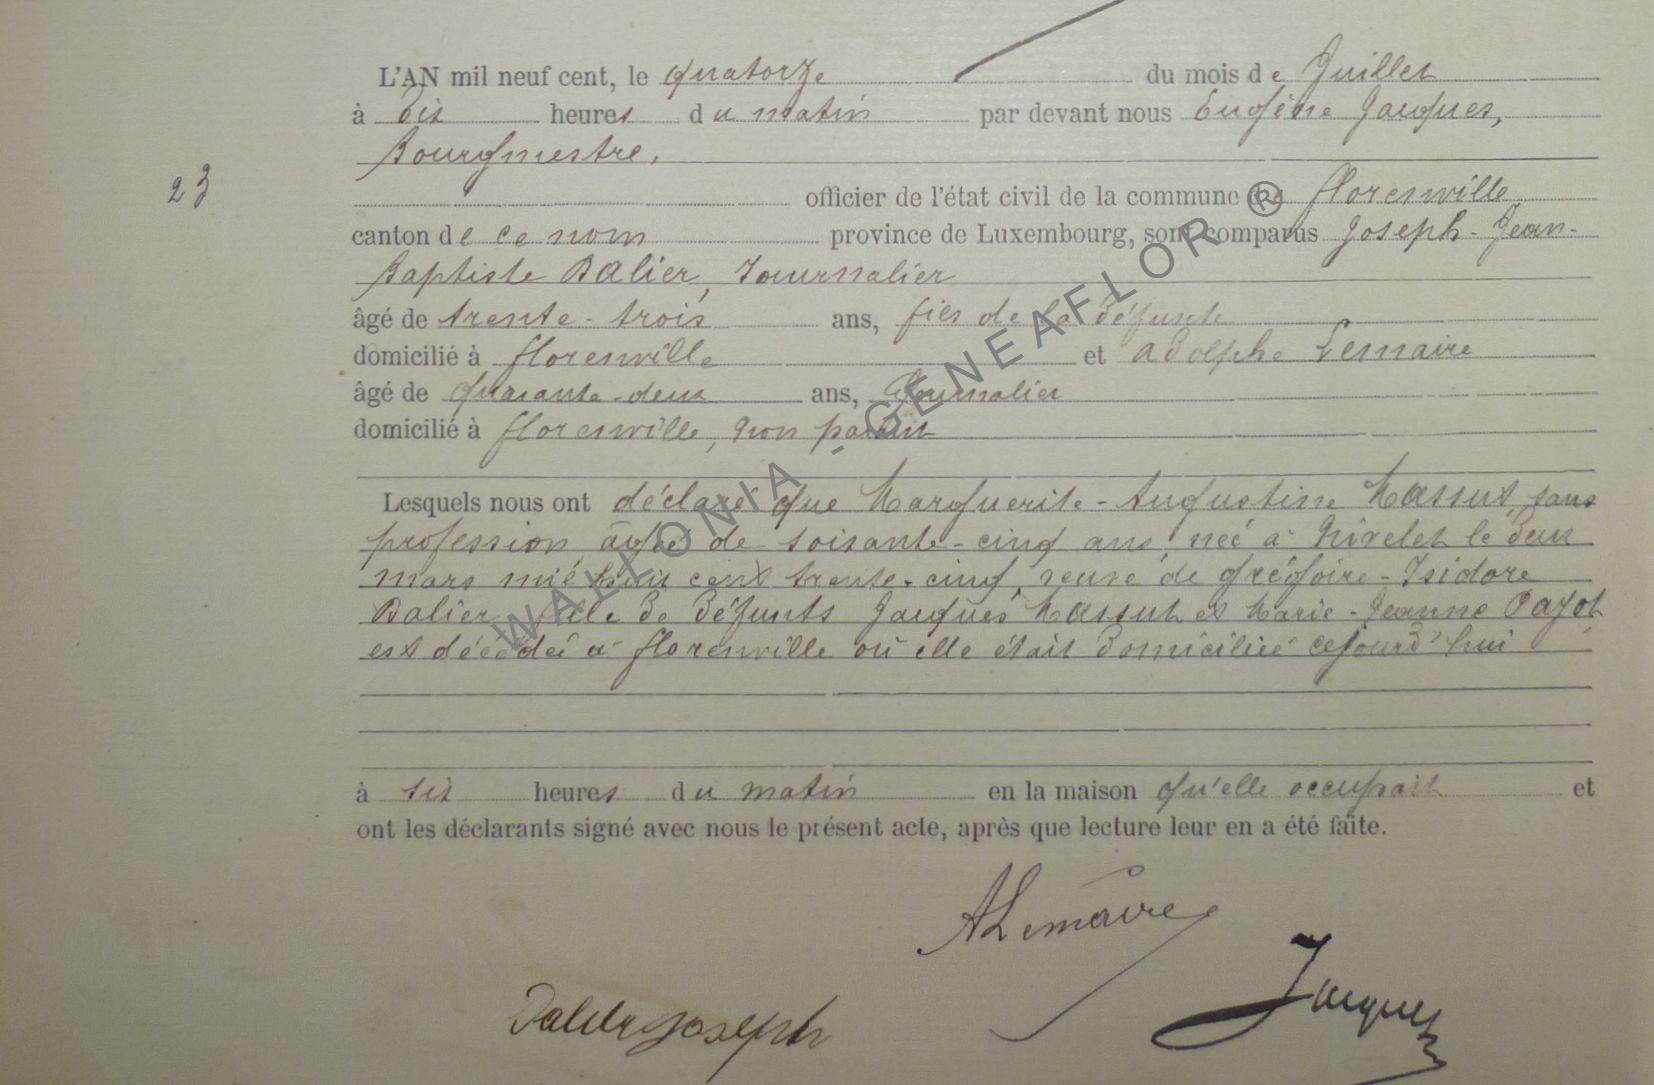 L'AN mil neuf cent, le quatorze du mois de Juillet
à dix heures du matin par devant nous Eugène Jacques,
Bourgmestre,
23
officier de l'état civil de la commune de florenville
canton de ce nom province de Luxembourg, sont comparus Joseph-Jean-
Baptiste Dalier, Journalier
âgé de trente-trois ans, fils de la défunte
domicilié à florenville et Adolphe Lemaire
âgé de quarante-deux ans, Journalier
domicilié à florenville, non parent
Lesquels nous ont déclaré que Marguerite-Augustine Massut, sans
profession, âgée de soixante-cinq ans, née à le deux
mars mil huit cent trente-cinq, veuve de grégoire-Isidore
Dalier, fille de défunts Jacques Massut et Marie-Jeanne
est décédée à florenville où elle était domiciliée cejourd'hui
à six heures du matin en la maison qu'elle occupait et
ont les déclarants signé avec nous le présent acte, après que lecture leur en a été faite.
ALemaire
Jacques
Dalier Joseph
WALLONIA - GENEAFLOR ®